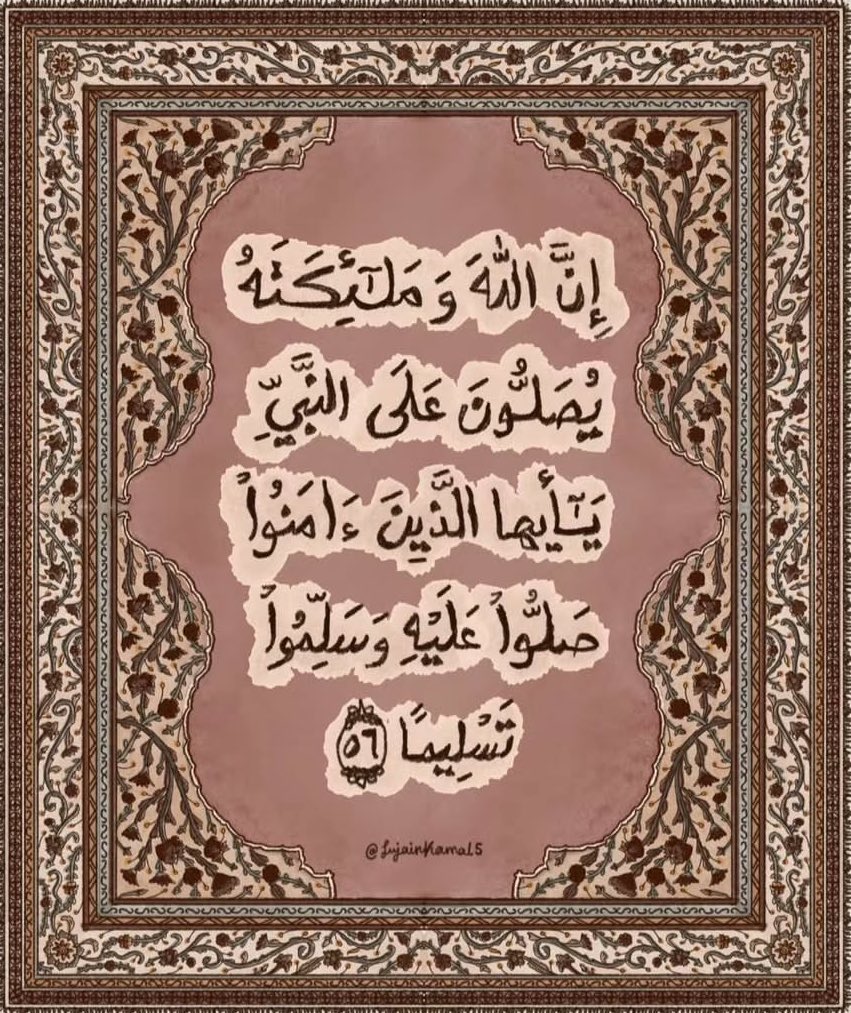 إِنَّ اللَّهَ وَ مَلَٰٓئِكَتَهُ
يُصَلُّونَ عَلَى النَّبِيِّ
يَٰٓأَيُّهَا الَّذِينَ ءَامَنُوا۟
صَلُّوا۟ عَلَيْهِ وَسَلِّمُوا۟
تَسْلِيمًا ٥٦
@LujainKamal5